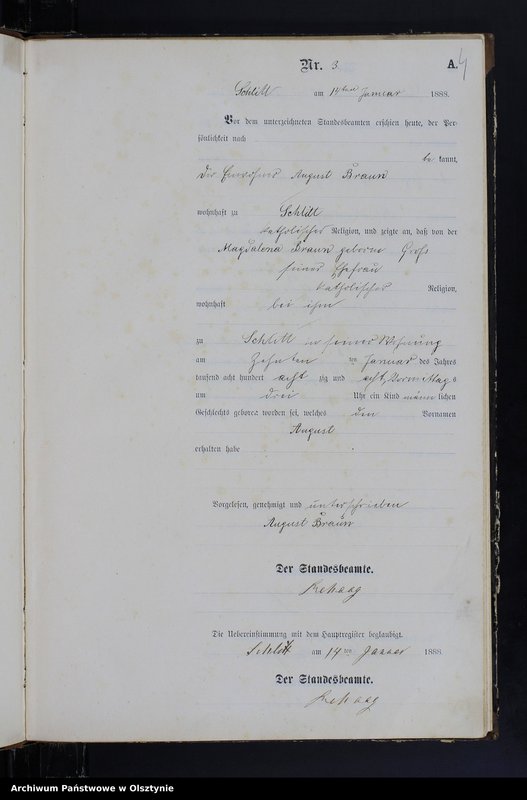 Nr. 3. A. 4
Schlitt am 14ten Januar 1888.
Vor dem unterzeichneten Standesbeamten erschien heute, der Per-
sönlichkeit nach
be kannt,
der Einwohner August Braun
wohnhaft zu Schlitt
katholischer Religion, und zeigte an, daß von der
Magdalena Braun geborne Groß
seiner Ehefrau
katholischer Religion,
wohnhaft bei ihm
zu Schlitt in seiner Wohnung
am zehnten ten Januar des Jahres
tausend acht hundert acht zig und acht, Vormittags
um drei Uhr ein Kind männ lichen
Geschlechts geboren worden sei, welches den Vornamen
August
erhalten habe
Vorgelesen, genehmigt und unterschrieben
August Braun
Der Standesbeamte.
Rehaag
Die Uebereinstimmung mit dem Hauptregister beglaubigt.
Schlitt am 14 ten Januar 1888.
Der Standesbeamte.
Rehaag
Archiwum Państwowe w Olsztynie